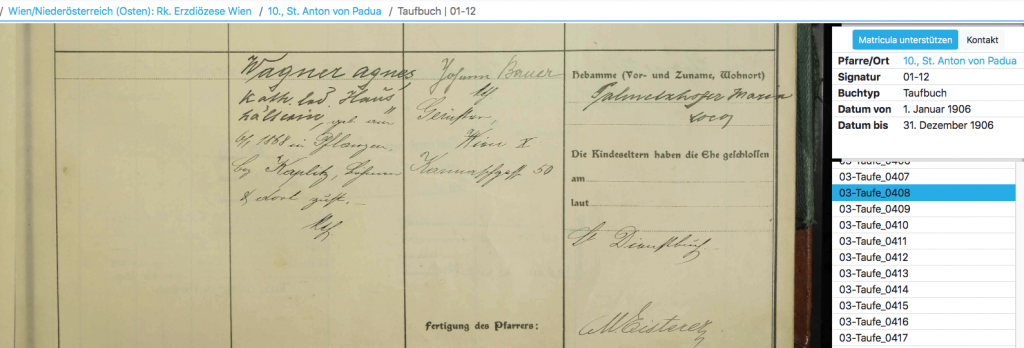 / Wien/Niederösterreich (Osten): Rk. Erzdiözese Wien / 10., St. Anton von Padua / Taufbuch | 01-12
Wagner Agnes
kath. led. Haus
hälterin, geb. am
6/1 1868 in Pflanzen,
bez Kaplitz, Böhmen
& dort zust.
Johann Bauer
Wien X
50
Hebamme (Vor- und Zuname, Wohnort)
Maria
Die Kindeseltern haben die Ehe geschlossen
am
laut
Dienstbuch
Fertigung des Pfarrers:
Matricula unterstützen Kontakt
Pfarre/Ort 10., St. Anton von Padua
Signatur 01-12
Buchtyp Taufbuch
Datum von 1. Januar 1906
Datum bis 31. Dezember 1906
03-Taufe_0406
03-Taufe_0407
03-Taufe_0408
03-Taufe_0409
03-Taufe_0410
03-Taufe_0411
03-Taufe_0412
03-Taufe_0413
03-Taufe_0414
03-Taufe_0415
03-Taufe_0416
03-Taufe_0417